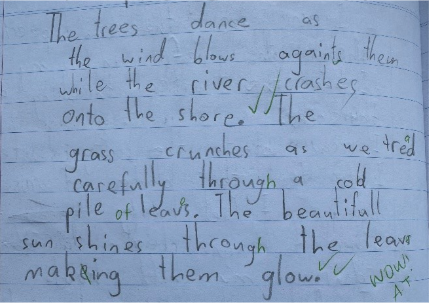 The trees dance as
the wind blows againts them
while the river crashes
onto the shore. The
grass crunches as we tread
carefully through a cold
pile of leavs. The beautifull
sun shines through the leavs
making them glow.
WOW!
A.T.